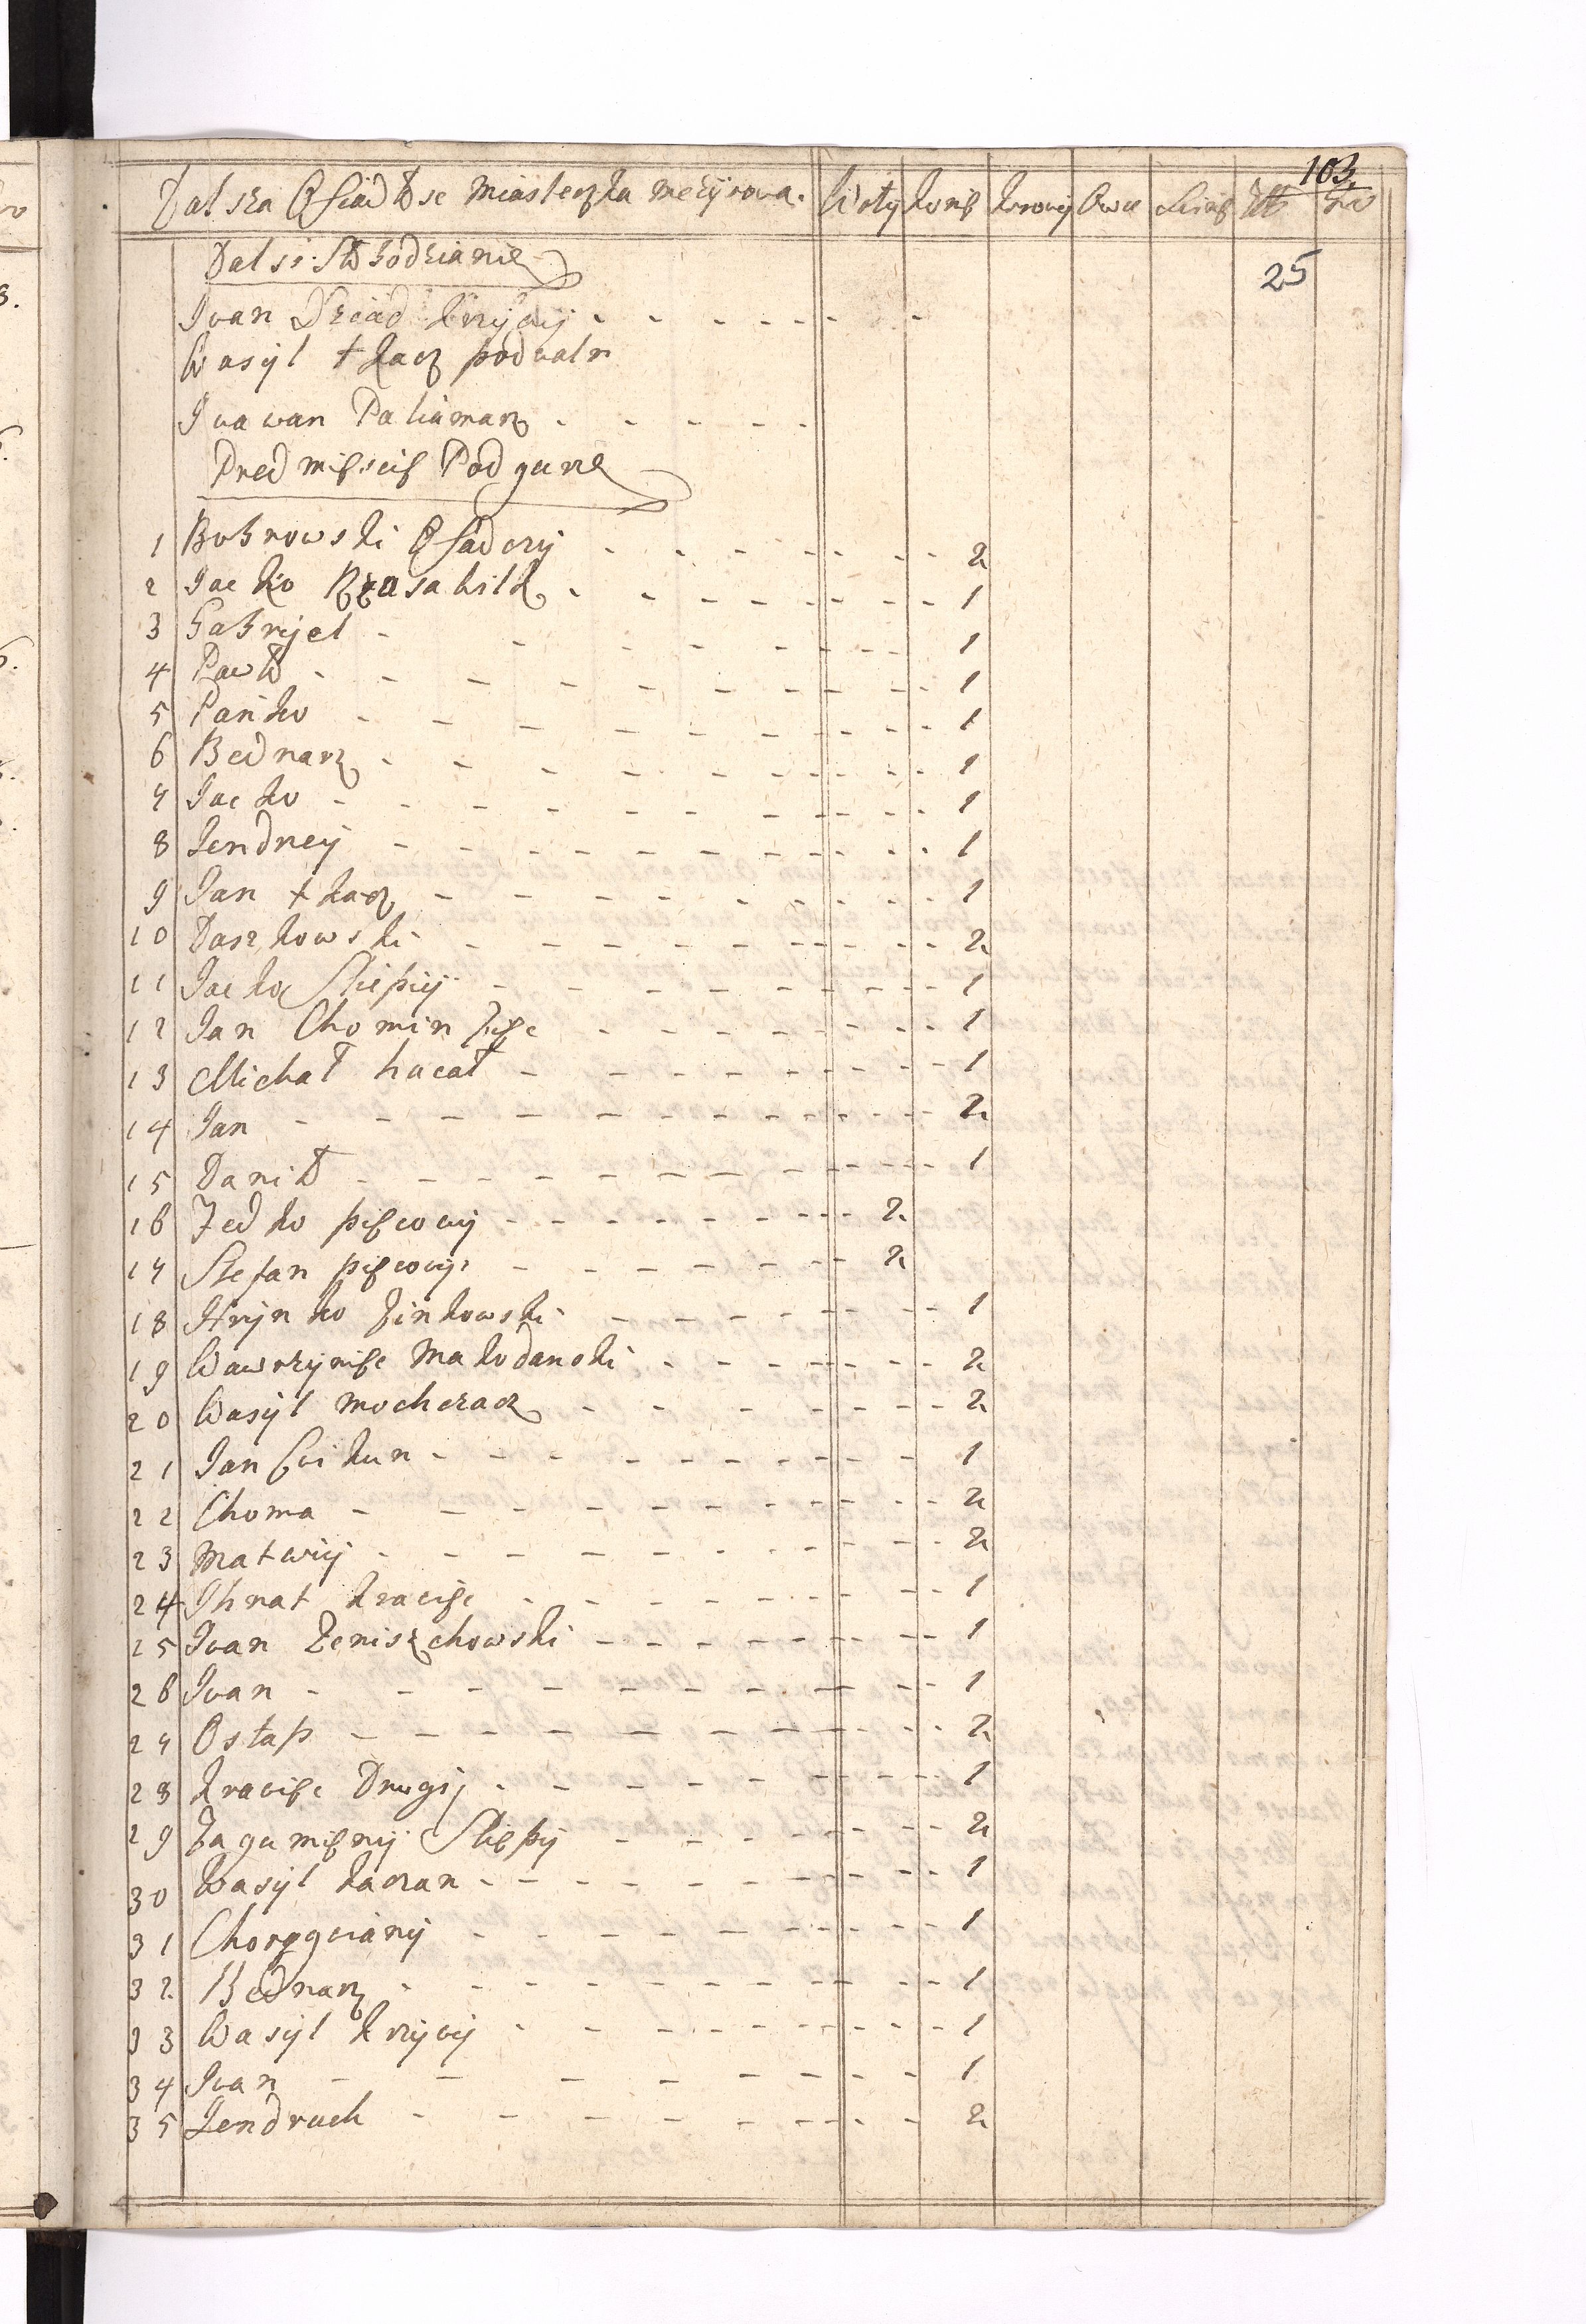 103.
Dalsza Osiadłosc Miasteczka Meżyrowa. Woły konie krowy Owce
25
Dalsi Słobodzianie
Iwan Dziad krzywy
Wasyl tkacz
Iwawan Palamarz
Pred miescie Pod gurne
1 Bobrowski Osadczy 2
2 Jacko 1
3 Gabryel 1
4 Pawło 1
5 Pańko 1
6 Bednarz 1
7 Jacko 1
8 Jendrey 1
9 Jan tkacz 1
10 Daszkowski 2
11 Jacko Sliepy 1
12 Jan Chominiec 1
13 Michał hucał 1
14 Jan 2
15 Daniło 1
16 Fedko piewowy 2
17 Stefan piewowy 2
18 Hrynko Zinkowski 1
19 Wawrzyniec Makodanski 2
20 Wasyl Mochczacz 2
21 Jan 1
22 Choma 2
23 Matwiy 2
24 Ihnat krawiec 1
25 Iwan Zeniszchowski 1
26 Iwan 1
27 Ostap 2
28 krawiec Drugij 1
29 Zagumieny Sliepy 2
30 Wasyl kaczan 1
31 Chorągwiany 1
32 Bednarz 1
33 Wasyl krzywy 1
34 Iwan 1
35 Jendruch 2